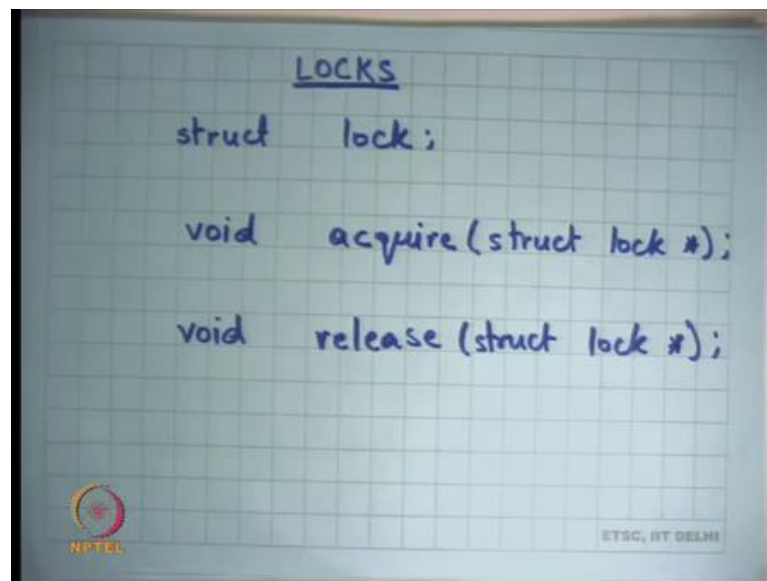 LOCKS
struct lock;
void acquire (struct lock *);
void release (struct lock *);
NPTEL
ETSC, IIT DELHI